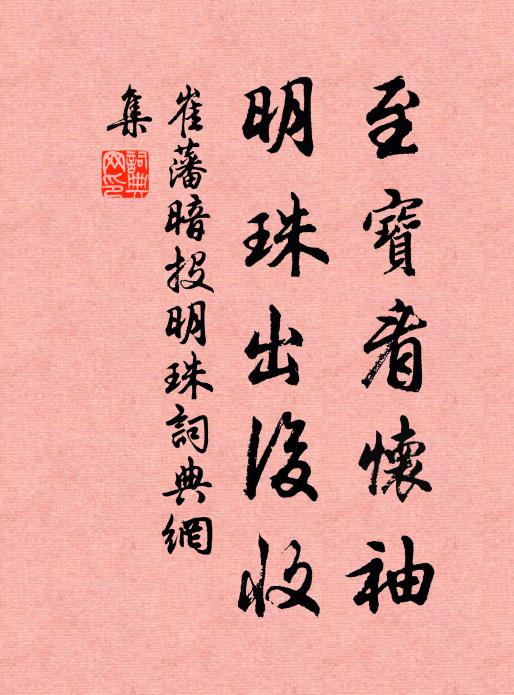 至寶看懷袖
明珠出後收
崔藩暗投明珠詞典網
集
詞典
网印